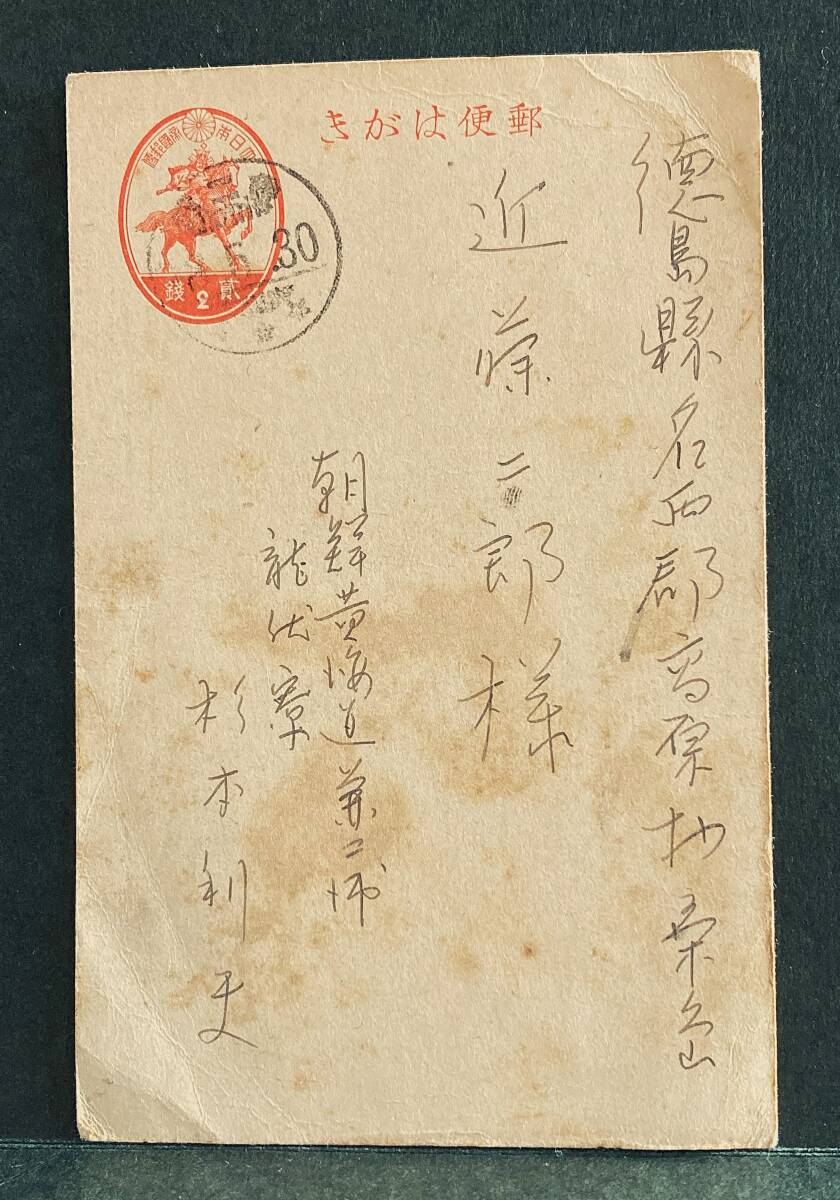 郵便はがき
大日本帝國郵便
貳2錢
.30
徳島縣名西郡高原村
近藤二郎様
朝鮮黄海道兼二浦
龍伏寮
杉本利夫